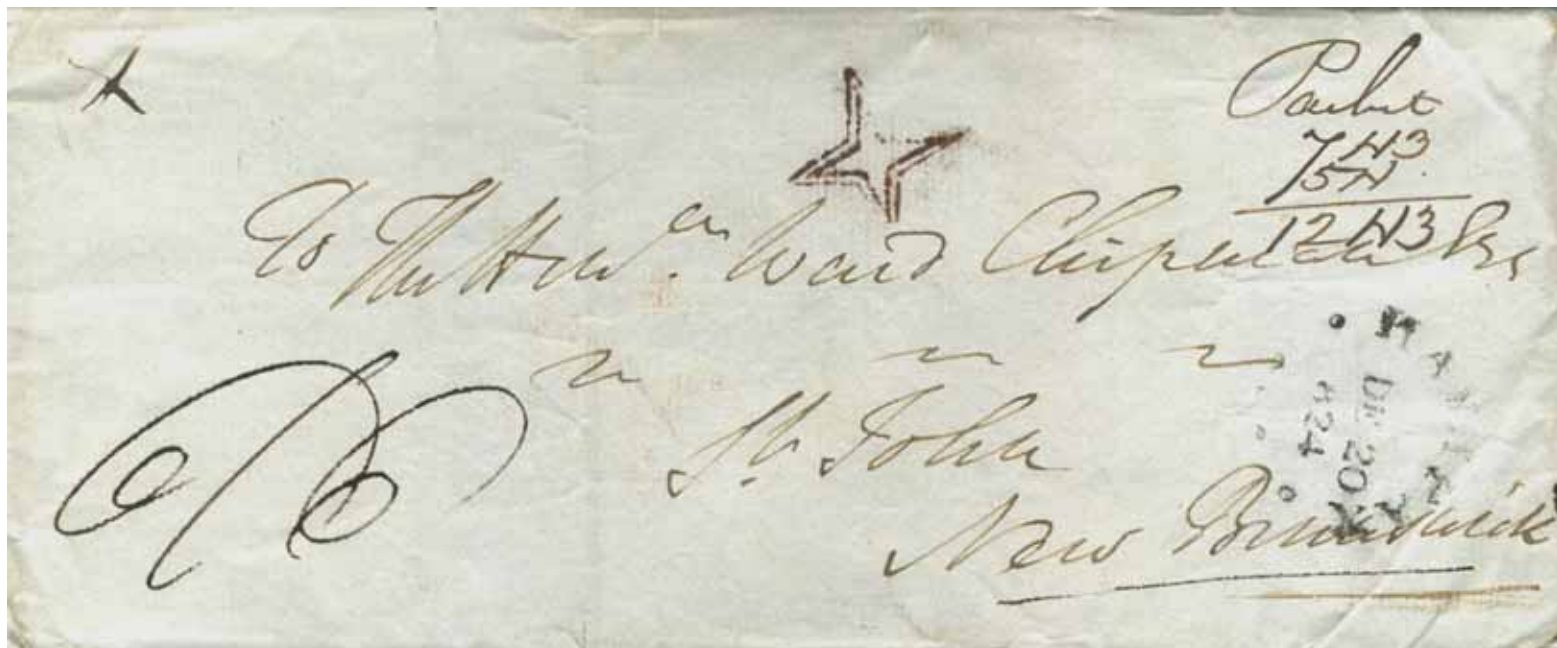 Packet
7 N3
5N
12 N3
To The Hon. Ward Chipman Esq
St. John
New Brunswick
HALIFAX
DE 20
824